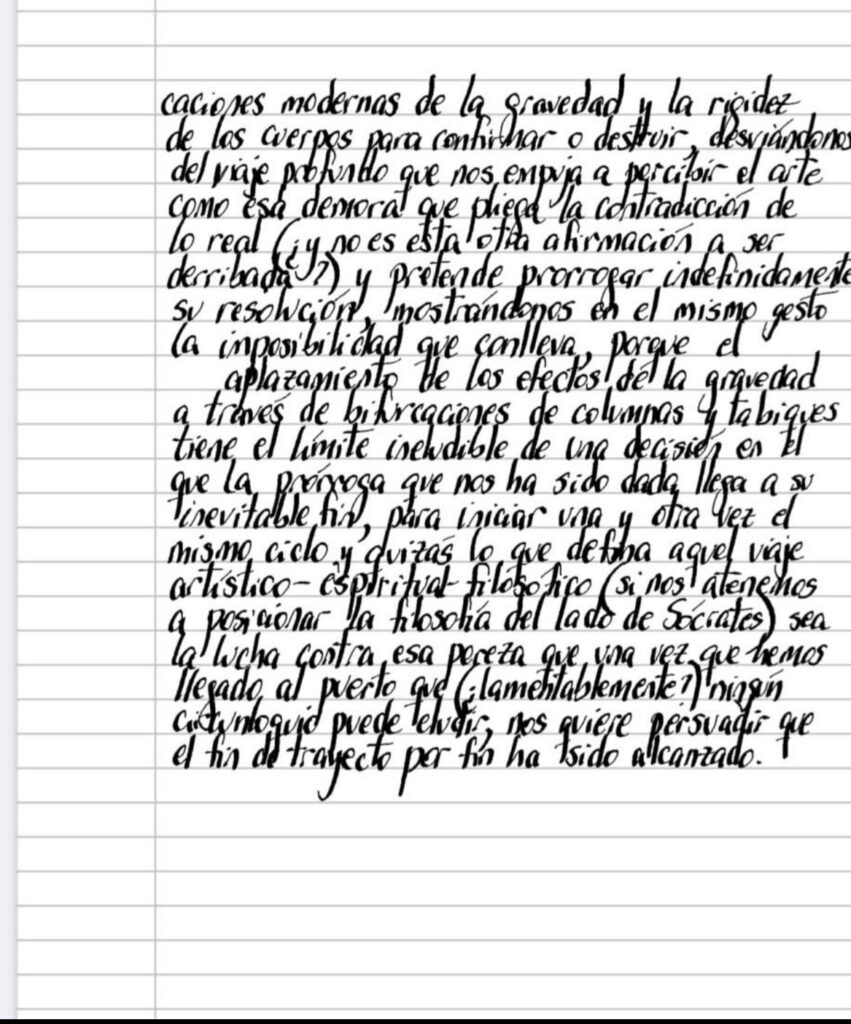 caciones modernas de la gravedad y la rigidez
de los cuerpos para confirmar o destruir, desviándonos
del viaje profundo que nos empuja a percibir el arte
como esa demora que pliega la contradicción de
lo real (¿y no es esta otra afirmación a ser
derribada?) y pretende prorrogar indefinidamente
su resolución, mostrándonos en el mismo gesto
la imposibilidad que conlleva, porque el
aplazamiento de los efectos de la gravedad
a través de bifurcaciones de columnas y tabiques
tiene el límite ineludible de una decisión en el
que la prórroga que nos ha sido dada llega a su
inevitable fin, para iniciar una y otra vez el
mismo ciclo y quizás lo que defina aquel viaje
artístico-espiritual-filosófico (si nos atenemos
a posicionar la filosofía del lado de Sócrates) sea
la lucha contra esa pereza que una vez que hemos
llegado al puerto que (¿lamentablemente?) ningún
circunloquio puede eludir, nos quiere persuadir que
el fin de trayecto por fin ha sido alcanzado.